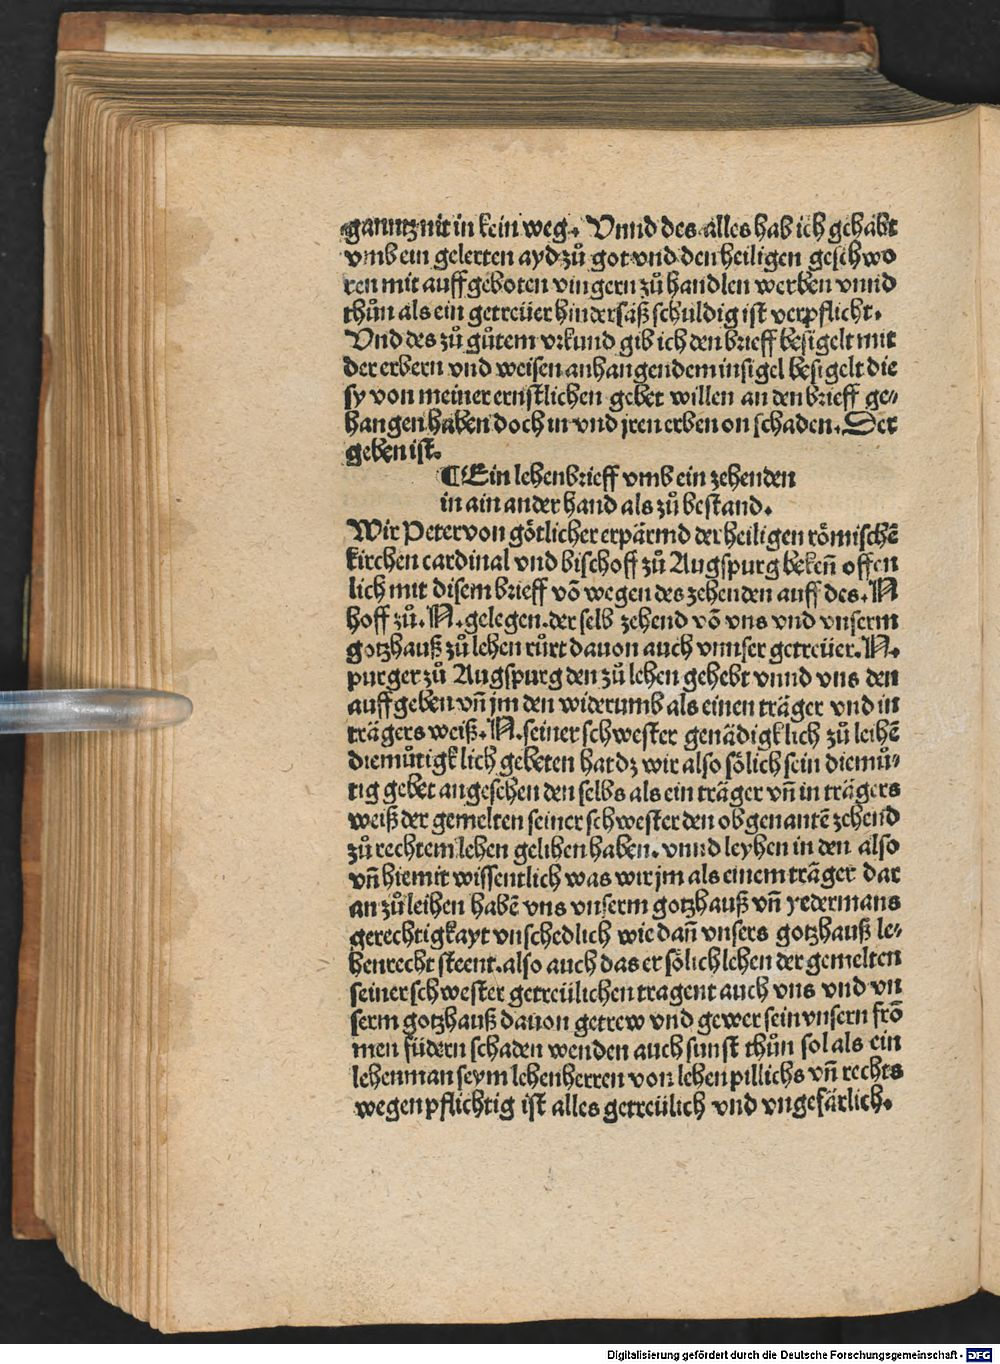 ganntz nit in kein weg. Vnnd des alles hab ich gehabt
vmb ein gelerten ayd zů got vnd den heiligen geschwo
ren mit auffgeboten vingern zů handlen werben vnnd
thůn als ein getreüer hindersäß schuldig ist verpflicht.
Vnd des zů gůtem vrkund gib ich den brieff besigelt mit
der erbern vnd weisen anhangendem insigel besigelt die
sy von meiner ernstlichen gebet willen an den brieff ge⸗
hangen haben doch in vnd jren erben on schaden. Der
geben ist.
¶ Ein lehenbrieff vmb ein zehenden
in ain ander hand als zů bestand.
Wir Peter von götlicher erpärmd der heiligen römischē
kirchen cardinal vnd bischoff zů Augspurg bekeñ offen
lich mit disem brieff vō wegen des zehenden auff des. N
hoff zů. N. gelegen. der selb zehend vō vns vnd vnserm
gotzhauß zů lehen růrt dauon auch vnnser getreüer. N.
purger zů Augspurg den zů lehen gehebt vnnd vns den
auffgeben vñ jm den widerumb als einen träger vnd in
trägers weiß. N. seiner schwester genädigklich zů leihē
diemůtigklich gebeten hat dz wir also sölich sein diemů⸗
tig gebet angesehen den selbs als ein träger vñ in trägers
weiß der gemelten seiner schwester den obgenantē zehend
zů rechtem lehen gelihen haben. vnnd leyhen in den also
vñ hiemit wissentlich was wir jm als einem träger dar
an zů leihen habē vns vnserm gotzhauß vñ yedermans
gerechtigkayt vnschedlich wie dañ vnsers gotzhauß le⸗
henrecht steent. also auch das er sölich lehen der gemelten
seiner schwester getreülichen tragent auch vns vnd vn
serm gotzhauß dauon getrew vnd gewer sein vnsern frō
men füdern schaden wenden auch sunst thůn sol als ein
lehenman seym lehenherren von lehen pillichs vñ rechts
wegen pflichtig ist alles getreülich vnd vngefärlich.
Digitalisierung gefördert durch die Deutsche Forschungsgemeinschaft - DFG